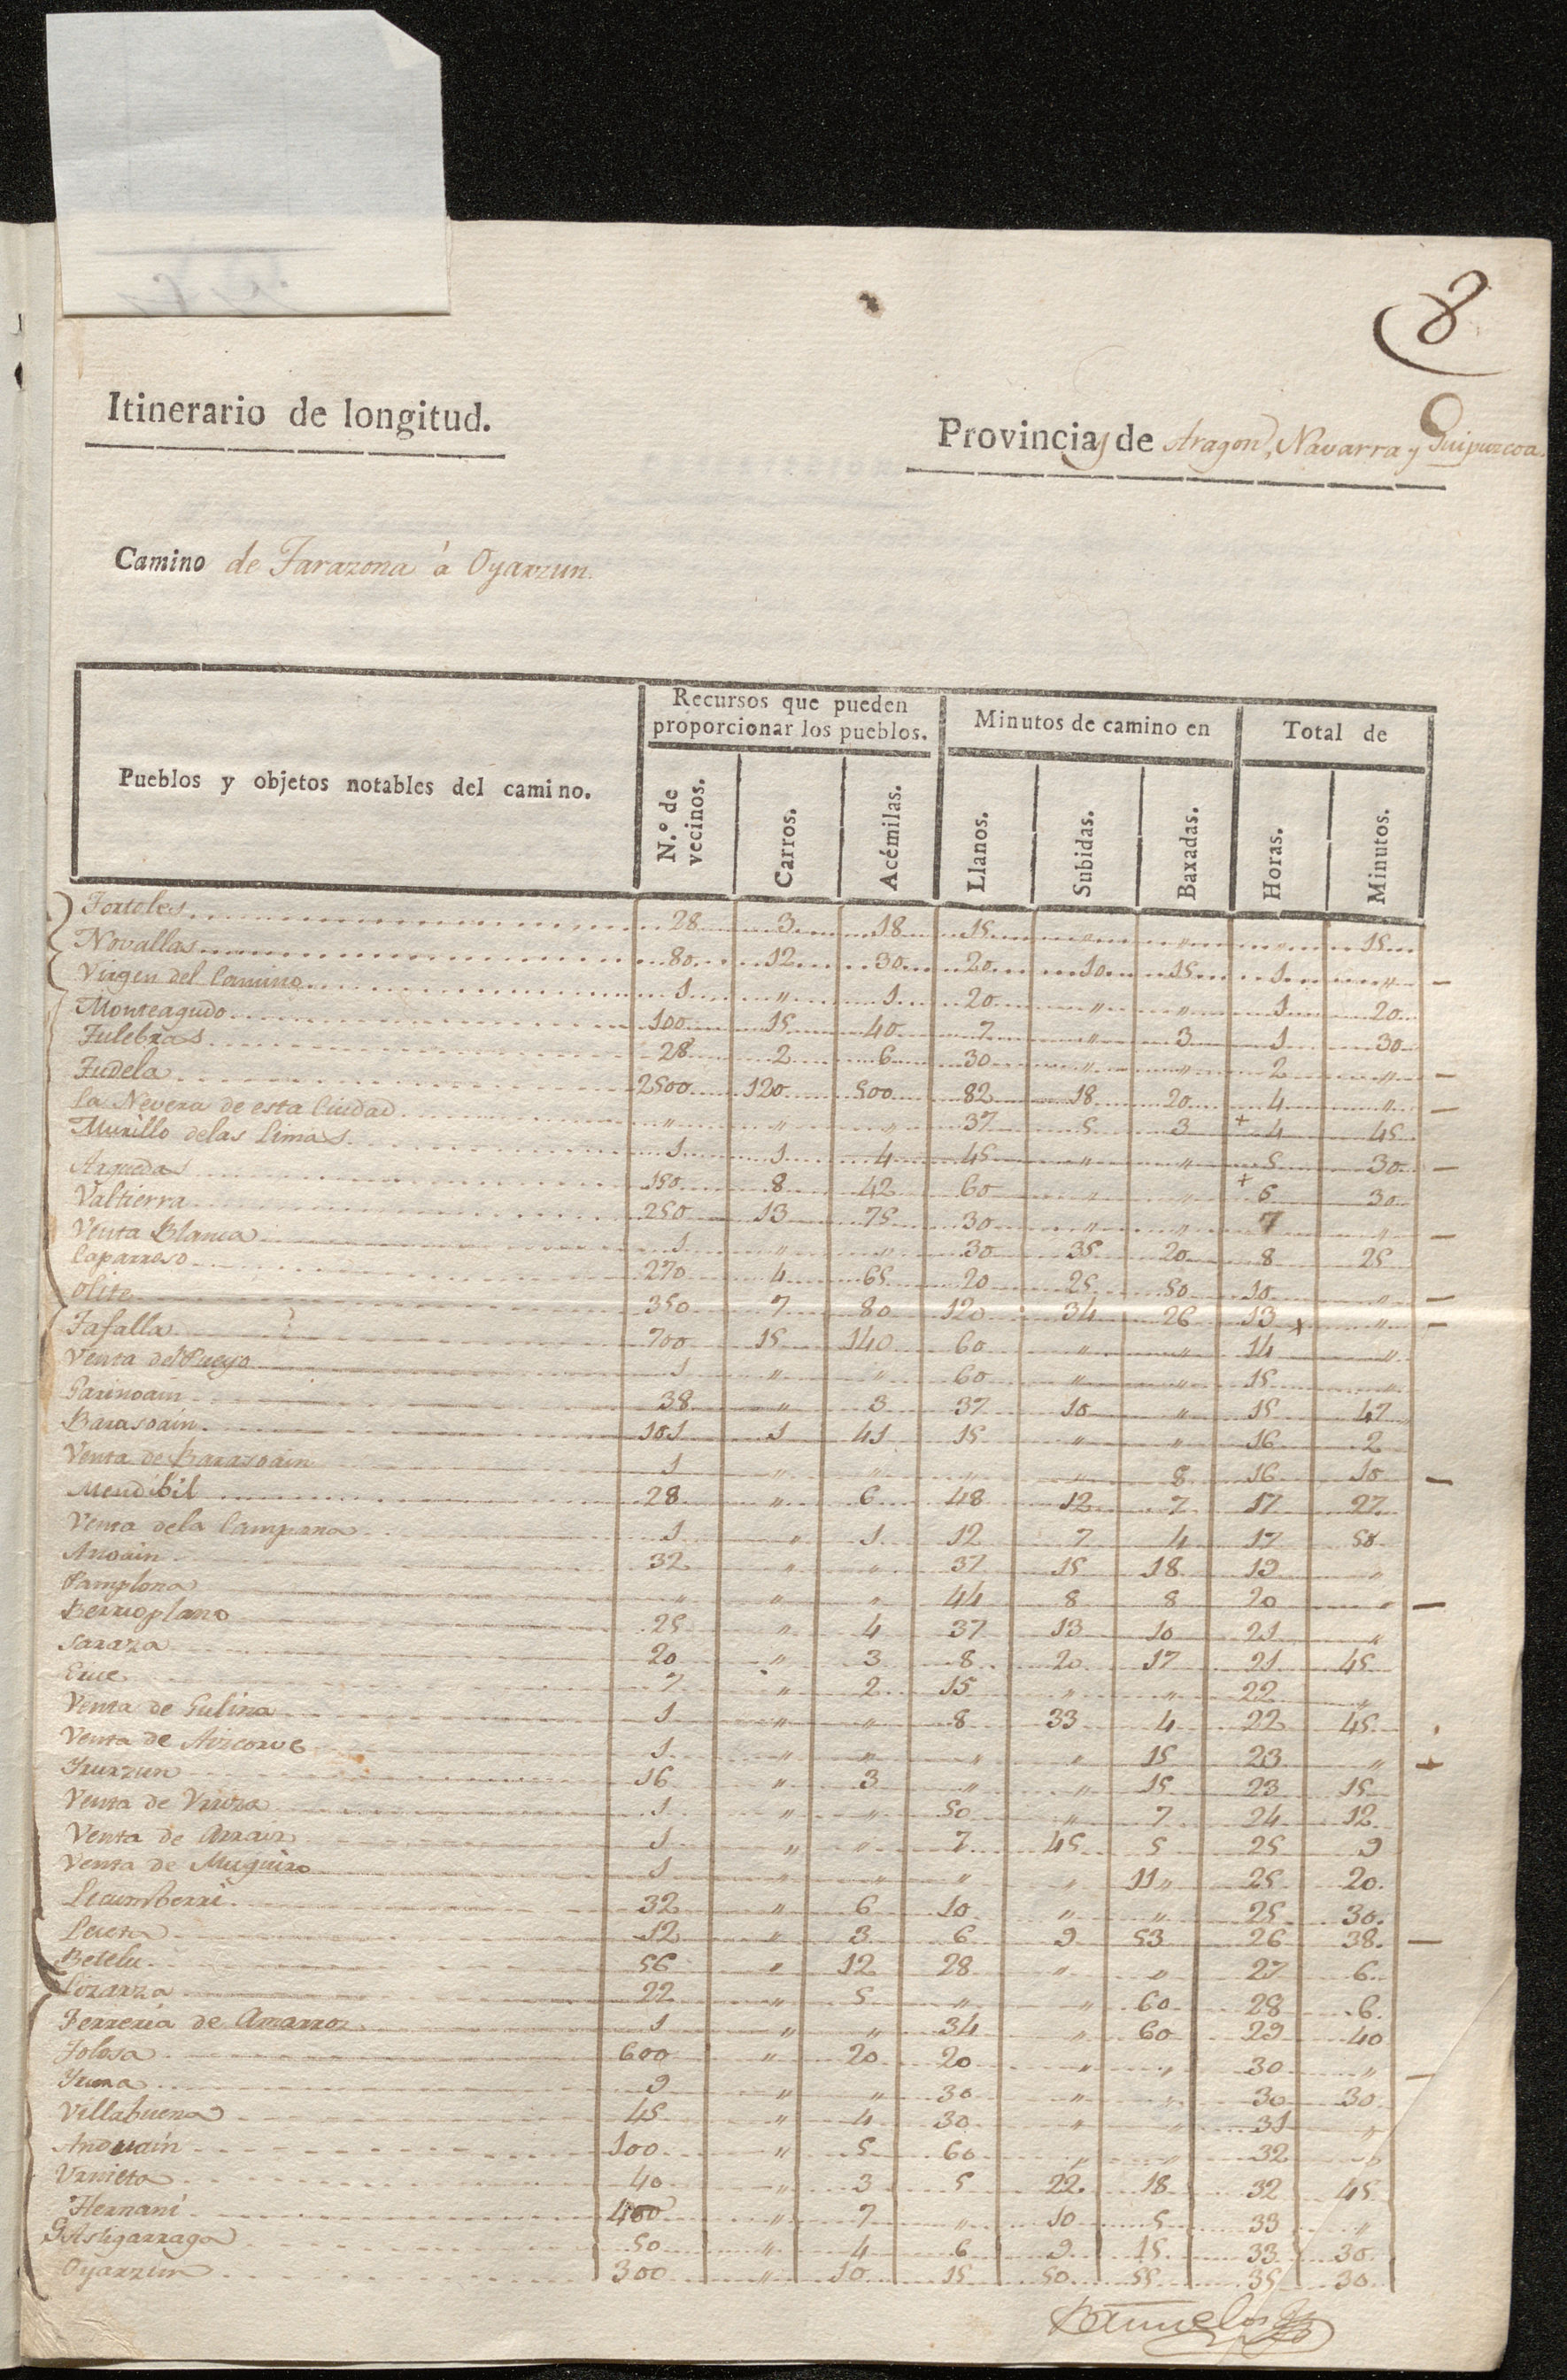 8
Itinerario de longitud.
Provincias de Aragon, Navarra y Guipuzcoa.
Camino de Tarazona á Oyarzun.
Pueblos y objetos notables del camino. Recursos que pueden proporcionar los pueblos. Minutos de camino en Total de
N.º de vecinos. Carros. Acémilas. Llanos. Subidas. Baxadas. Horas. Minutos.
Tortoles 28 3 18 15 " " " 15
Novallas 80 12 30 20 10 15 1 "
Virgen del Camino 1 " 1 20 " " 1 20
Monteagudo 100 15 40 7 " 3 1 30
Tulebras 28 2 6 30 " " 2 "
Tudela 2500 120 500 82 18 20 4 "
La Nevera de esta Ciudad " " " 37 5 3 + 4 45
Murillo delas Limas 1 1 4 45 " " 5 30
Arguedas 150 8 42 60 " " + 6 30
Valtierra 250 13 75 30 " " 7 "
Venta Blanca 1 " " 30 35 20 8 25
Caparroso 270 4 65 20 25 50 10 "
Olite 350 7 80 120 34 26 13 x "
Tafalla 700 15 140 60 " " 14 "
Venta del Pueyo 1 " " 60 " " 15 "
Garinoain 38 " 3 37 10 " 15 47
Barasoain 101 1 41 15 " " 16 2
Venta de Barasoain 1 " " " " 8 16 10
Mendibil 28 " 6 48 12 7 17 27
Venta dela Campana 1 " 1 12 7 4 17 50
Anoain 32 " " 37 15 18 19 "
Pamplona " " " 44 8 8 20 "
Berrioplano 25 " 4 37 13 10 21 "
Saraza 20 " 3 8 20 17 21 45
Erice 7 " 2 15 " " 22 "
Venta de Gulina 1 " " 8 33 4 22 45
Venta de Aizcorve 1 " " " " 15 23 "
Yrurzun 16 " 3 " " 15 23 15
Venta de 1 " " 50 " 7 24 12
Venta de Arraiz 1 " " 7 45 5 25 9
Venta de Muguiro 1 " " " " 11 " 25 20
Lecumberri 32 " 6 10 " " 25 30
Leceta 12 " 3 6 9 53 26 38
Betelu 56 " 12 28 " " 27 6
Lizarza 22 " 5 " " 60 28 6
Ferreria de Amarroz 1 " " 34 " 60 29 40
Tolosa 600 " 20 20 " " 30 "
Yrura 9 " " 30 " " 30 30
Villabuena 45 " 4 30 " " 31 "
Anduain 100 " 5 60 " " 32 "
Urnieta 40 " 3 5 22 18 32 45
Hernani 400 " 7 " 10 5 33 "
Astigarraga 50 " 4 6 9 15 33 30
Oyarzun 300 " 10 15 50 55 35 30
Bañuelos